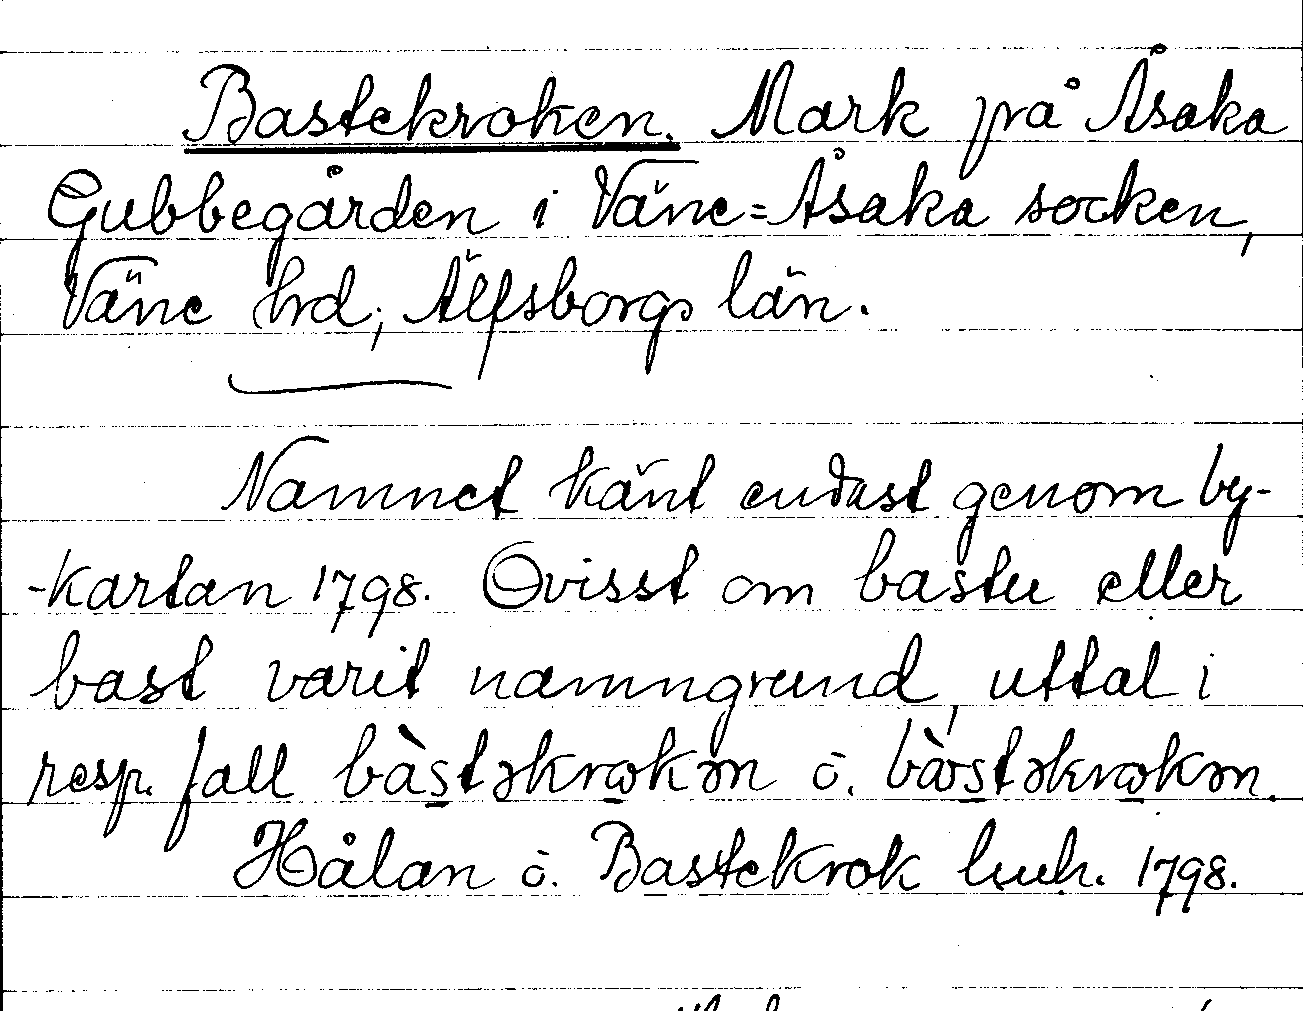 Bastekroken. Mark på Åsaka
Gubbegården i Väne=Åsaka socken,
Väne hrd, Älfsborgs län.
Namnet känt endast genom by-
-kartan 1798. Ovisst om bastu eller
bast varit namngrund, uttal i
resp. fall bàstəkrokən o.
Hålan o. Bastekrok 1798.